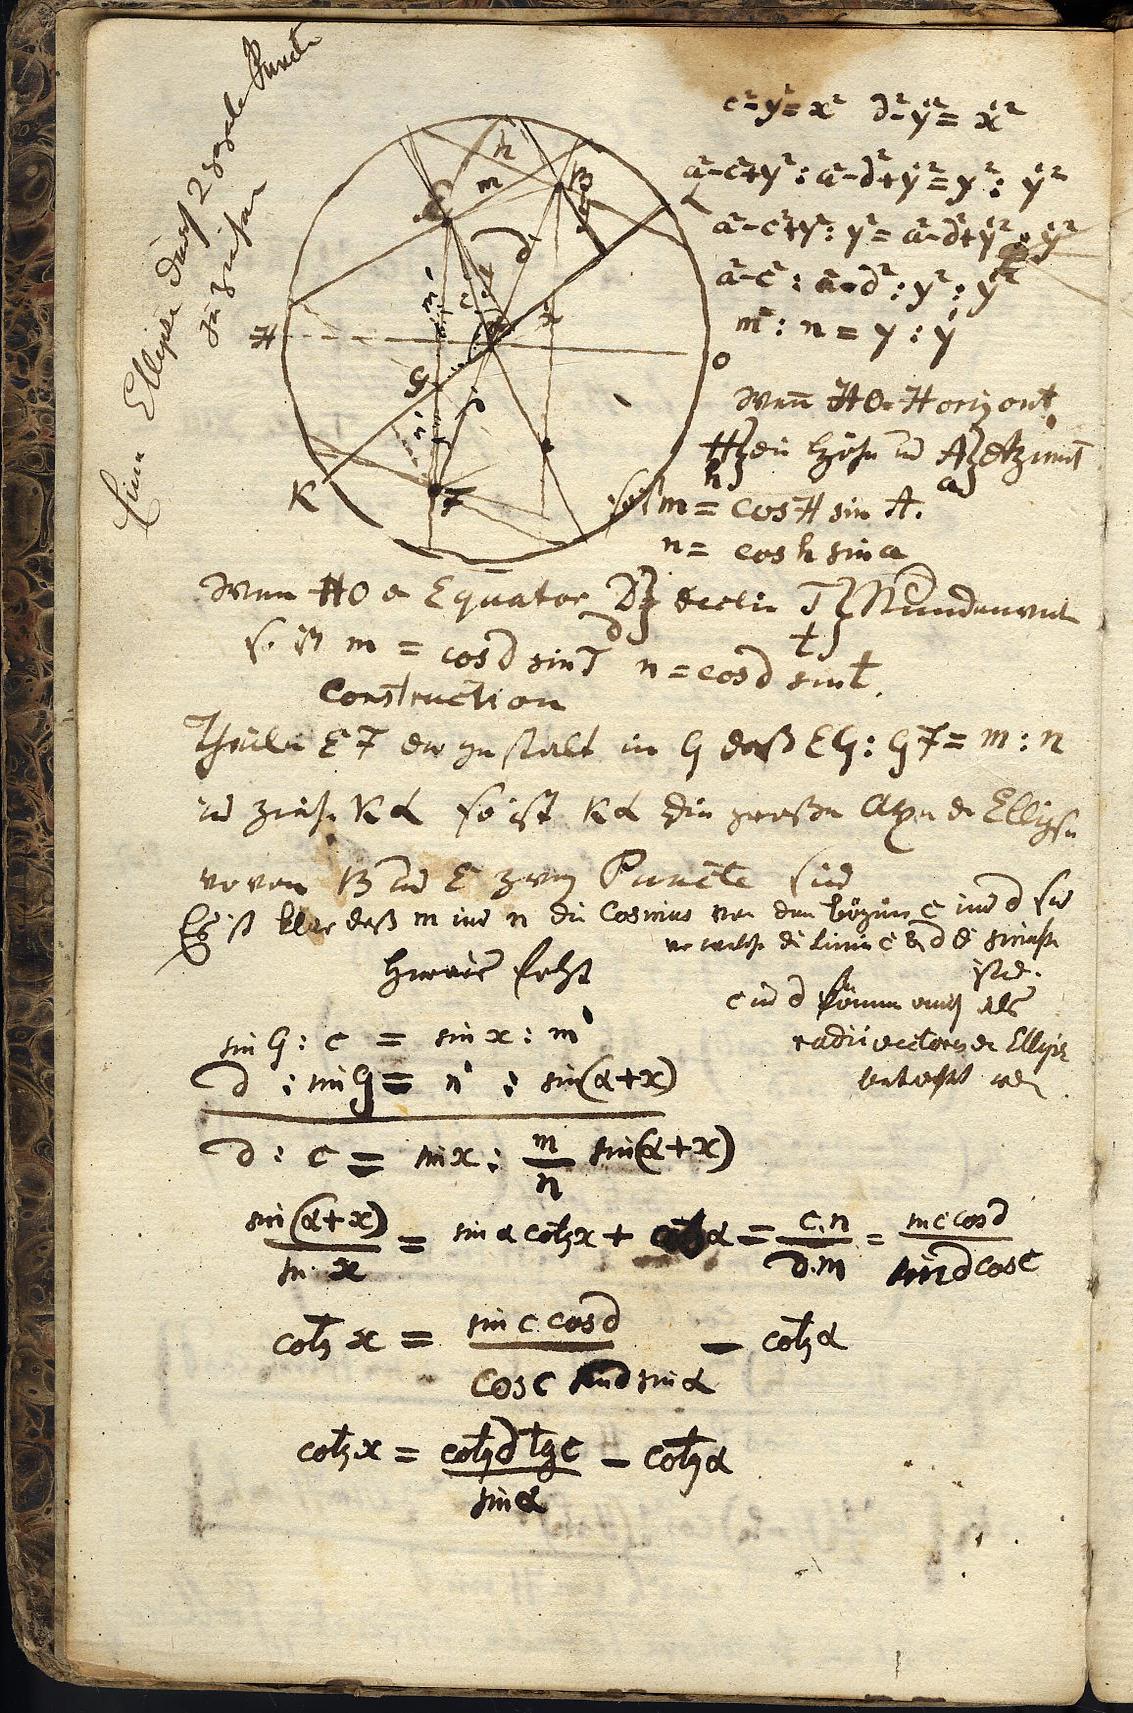 Eine Ellipse durch 2 gegebene Puncte
zu ziehen
c² - y² = x² d² - ẏ² = ẋ²
a² - c² + y² : a² - d² + ẏ² = y² : ẏ²
a² - c² + y² : y² = a² - d² + ẏ² : ẏ²
a² - c² : a² - d² : y² : ẏ²
m : n = y : ẏ
Wenn HO Horizont
H h die Höhe und A a Azimut
so ist m = cos H sin A.
n = cos h sin a
h
m
B
E
d
m'
c
α
x
H
O
G
n'
K
F
Wenn HO Equator D d declin T t Stundenwinkel
so ist m = cos D sin T n = cos d sin t.
Construction
Theile EF dergestalt in G daß EG : GF = m : n
und ziehe Kα so ist Kα die große Axe der Ellipse
wovon B und E zwey Puncte sind
Es ist klar daß m und n die Cosinus von den bögen c und d sind
vor welche die Linien c & d die sinusse
sind.
Hieraus folgt
c und d können auch als
radii vectores der Ellipse
betrachtet werden
sin G : c = sin x : m'
d : sin G = n' : sin(α+x)
d : c = sin x : m/n sin(α+x)
sin(α+x)/sin x = sin α cotg x + cos α = c.n/d.m = sin c cos d/sin d cos c
cotg x = sin c cos d/cos c sin d sin α - cotg α
cotg x = cotg d tg c/sin α - cotg α